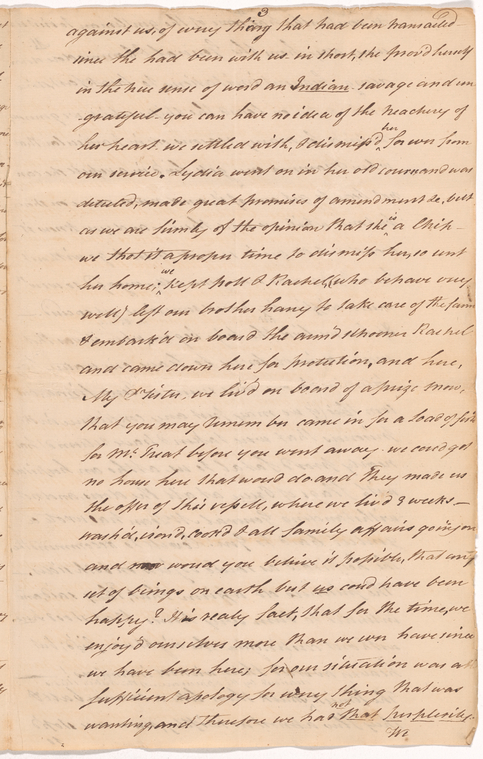 3
against us, of every thing that had been transacted
since she had been with us. in short, she prov'd herself
in the true sense of word an Indian savage and un
-grateful you can have no idea of the treachery of
her heart. we settled with, & dismiss'd her for ever from
our service. Lydia went on in her old course and was
detected, made great promises of amendment &c, but
as we are firmly of the opinion that she is a
we thot it a proper time to dismiss her, so sent
her home; we kept & Rachel, (who behave very
well) left our brother harry to take care of the farm
& embark'd on board the arm'd schooner Rachel
and came down here for protection, and here,
My Sister, we liv'd on board of a prize snow,
that you may remember came in for a load of fish
for Mr. before you went away. we could get
no house here that would do and they made us
the offer of this vessell, where we liv'd 8 weeks—
wash'd, iron'd, cook'd & all family affairs going on
and would you believe it possible, that any
set of beings on earth but us could have been
happy? It is realy fact, that for the time, we
enjoy'd ourselves more than we ever have since
we have been here; for our situation was a
sufficient apology for every thing that was
wanting, and therefore we had not that perplexity.
We